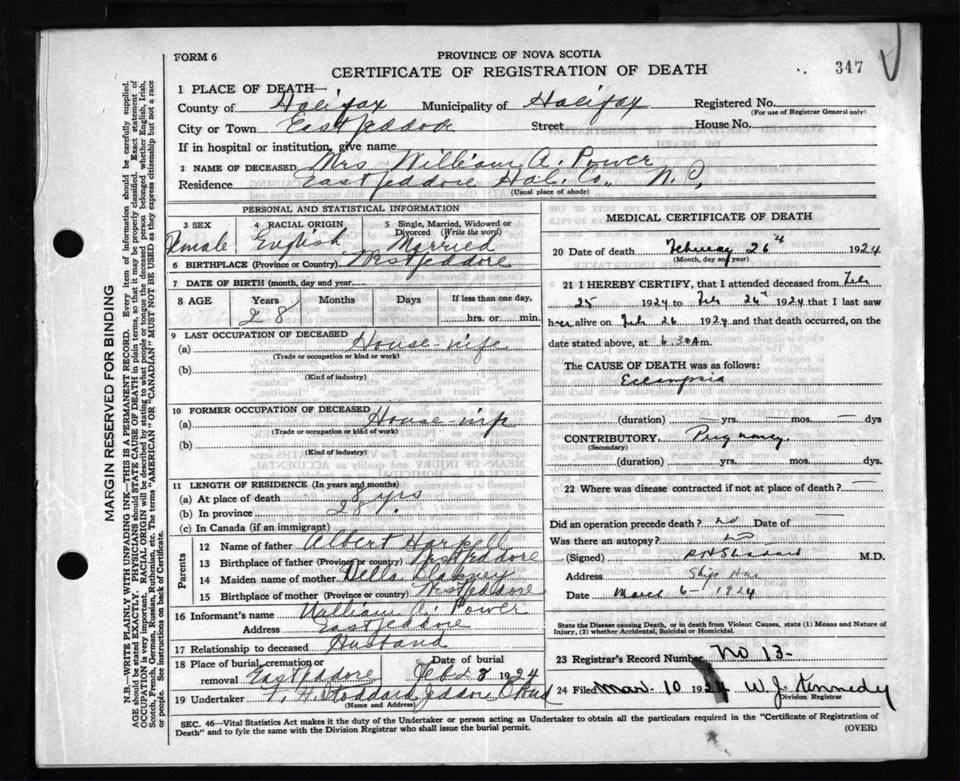 FORM 6
PROVINCE OF NOVA SCOTIA
CERTIFICATE OF REGISTRATION OF DEATH
347
1 PLACE OF DEATH—
County of Halifax Municipality of Halifax Registered No.
(For use of Registrar General only)
City or Town East Jeddore Street House No.
If in hospital or institution, give name
2 NAME OF DECEASED Mrs William A. Power
Residence East Jeddore Hal. Co., N.
(Usual place of abode)
PERSONAL AND STATISTICAL INFORMATION
3 SEX Female
4 RACIAL ORIGIN English
5 Single, Married, Widowed or Divorced (Write the word) Married
6 BIRTHPLACE (Province or Country) West Jeddore
7 DATE OF BIRTH (month, day and year)
8 AGE Years 28 Months Days If less than one day, hrs. or min.
9 LAST OCCUPATION OF DECEASED
(a) House-wife
(Trade or occupation or kind or work)
(b)
(Kind of industry)
10 FORMER OCCUPATION OF DECEASED
(a) House-wife
(Trade or occupation or kind of work)
(b)
(Kind of industry)
11 LENGTH OF RESIDENCE (In years and months)
(a) At place of death 8 yrs
(b) In province 28 y.
(c) In Canada (if an immigrant)
Parents
12 Name of father Albert Harpell
13 Birthplace of father (Province or country) West Jeddore
14 Maiden name of mother Della
15 Birthplace of mother (Province or country) West Jeddore
16 Informant's name William A. Power
Address East Jeddore
17 Relationship to deceased Husband
18 Place of burial, cremation or removal East Jeddore Date of burial Feb 1924
19 Undertaker Stoddard Jeddore
(Name and Address)
MEDICAL CERTIFICATE OF DEATH
20 Date of death February 26th 1924
(Month, day and year)
21 I HEREBY CERTIFY, that I attended deceased from Feb
25 1924 to Feb 26th 1924 that I last saw
her alive on Feb 26 1924 and that death occurred, on the
date stated above, at 6.30 A m.
The CAUSE OF DEATH was as follows:
Eclampsia
(duration) — yrs. mos. dys
CONTRIBUTORY Pregnancy.
(Secondary)
(duration) — yrs. mos. dys.
22 Where was disease contracted if not at place of death? —
Did an operation precede death? no Date of —
Was there an autopsy? no
(Signed) M.D.
Address Ship Har
Date March 6 - 1924
State the Disease causing Death, or in death from Violent Causes, state (1) Means and Nature of Injury, (2) whether Accidental, Suicidal or Homicidal.
23 Registrar's Record Number No 13-
24 Filed Mar. 10 1924 W. J. Kennedy
Division Registrar
SEC. 46—Vital Statistics Act makes it the duty of the Undertaker or person acting as Undertaker to obtain all the particulars required in the "Certificate of Registration of
Death" and to fyle the same with the Division Registrar who shall issue the burial permit. (OVER)
MARGIN RESERVED FOR BINDING
N.B.—WRITE PLAINLY WITH UNFADING INK—THIS IS A PERMANENT RECORD. Every item of information should be carefully supplied.
AGE should be stated EXACTLY. PHYSICIANS should STATE CAUSE OF DEATH in plain terms, so that it may be properly classified. Exact statement of
OCCUPATION is very important. RACIAL ORIGIN will be described by stating to what people or tongue the deceased person belonged whether English, Irish,
Scotch, French, German, Russian, Ruthenian, etc. The terms "AMERICAN" OR "CANADIAN" MUST NOT BE USED as they express citizenship but not a race
or people. See instructions on back of Certificate.